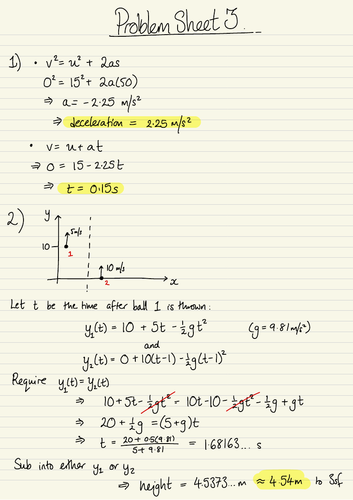 Problem Sheet 3
1) • v² = u² + 2as
0² = 15² + 2a(50)
⇒ a = -2.25 m/s²
⇒ deceleration = 2.25 m/s²
• v = u + at
⇒ 0 = 15 - 2.25t
⇒ t = 0.15s
2) y
5m/s
10
1
10 m/s
2
x
Let t be the time after ball 1 is thrown:
y₁(t) = 10 + 5t - ½gt² (g = 9.81 m/s²)
and
y₂(t) = 0 + 10(t-1) - ½g(t-1)²
Require y₁(t) = y₂(t)
⇒ 10 + 5t - ½gt² = 10t - 10 - ½gt² - ½g + gt
⇒ 20 + ½g = (5+g)t
⇒ t = (20 + 0.5(9.81))/(5 + 9.81) = 1.68163... s
Sub into either y₁ or y₂
⇒ height = 4.5373... m ≈ 4.54m to 3sf